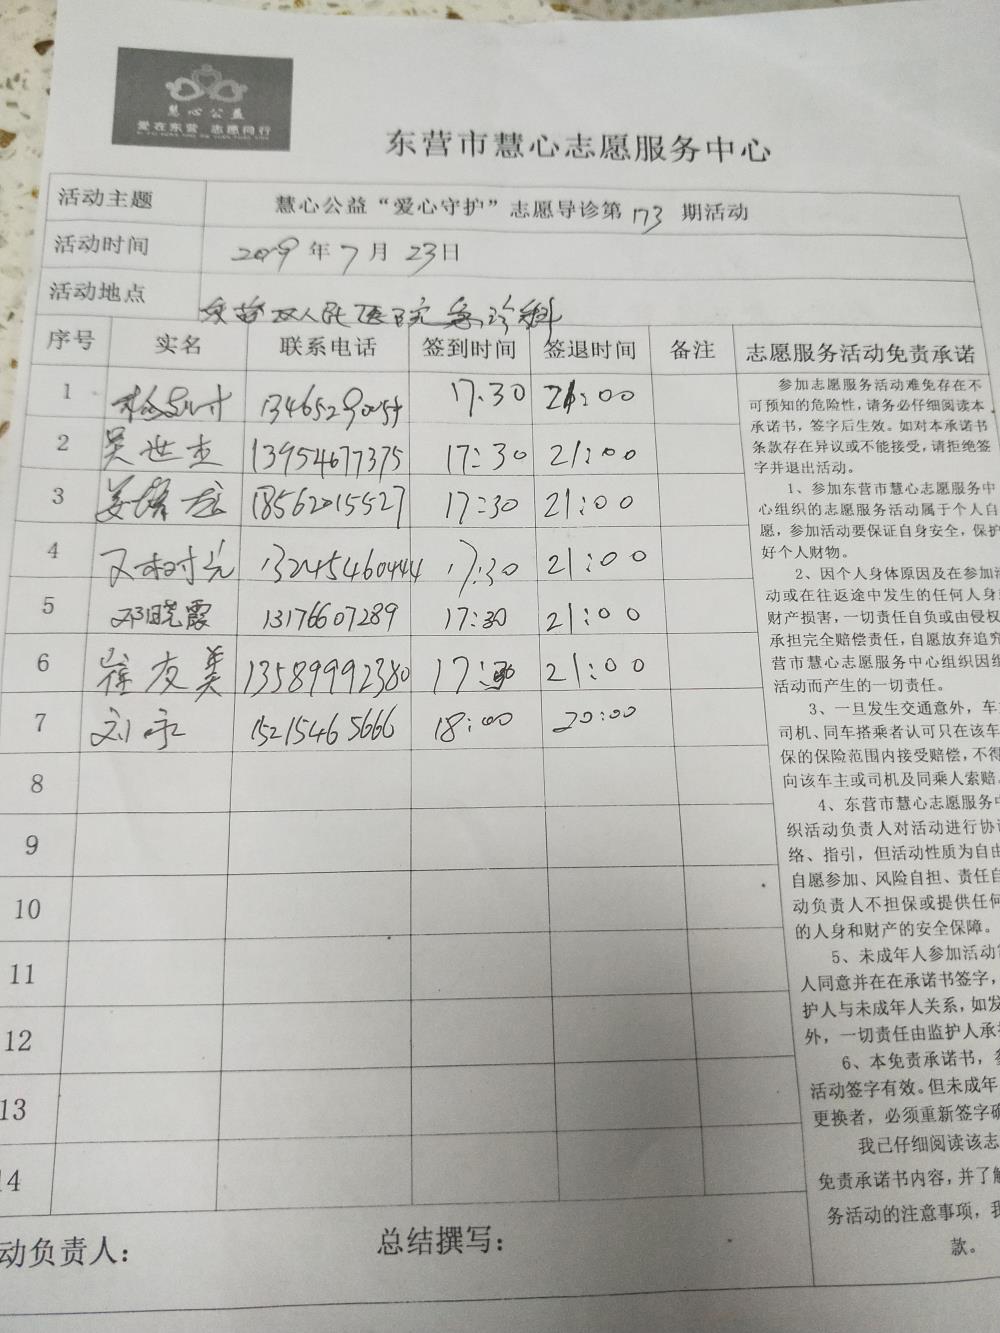 慧心公益
爱在东营 志愿同行
东营市慧心志愿服务中心
活动主题 慧心公益“爱心守护”志愿导诊第173期活动
活动时间 2019年7月23日
活动地点 人民医院急诊科
序号 实名 联系电话 签到时间 签退时间 备注 志愿服务活动免责承诺
1 17:30 21:00
2 吴世杰 13954677375 17:30 21:00
3 18562015527 17:30 21:00
4 17:30 21:00
5 邓晓霞 13176607289 17:30 21:00
6 崔友美 13589992380 17:30 21:00
7 刘永 15215465666 18:00 20:00
8
9
10
11
12
13
14
动负责人: 总结撰写:
参加志愿服务活动难免存在不
可预知的危险性,请务必仔细阅读本
承诺书,签字后生效。如对本承诺书
条款存在异议或不能接受,请拒绝签
字并退出活动。
1、参加东营市慧心志愿服务中
心组织的志愿服务活动属于个人自
愿,参加活动要保证自身安全,保护
好个人财物。
2、因个人身体原因及在参加活
动或在往返途中发生的任何人身
财产损害,一切责任自负或由侵权
承担完全赔偿责任,自愿放弃追究
营市慧心志愿服务中心组织因组
活动而产生的一切责任。
3、一旦发生交通意外,车
司机、同车搭乘者认可只在该车
保的保险范围内接受赔偿,不得
向该车主或司机及同乘人索赔。
4、东营市慧心志愿服务中
织活动负责人对活动进行协
络、指引,但活动性质为自由
自愿参加、风险自担、责任自
动负责人不担保或提供任何
的人身和财产的安全保障。
5、未成年人参加活动
人同意并在在承诺书签字,
护人与未成年人关系,如发
外,一切责任由监护人承
6、本免责承诺书,参
活动签字有效。但未成年
更换者,必须重新签字确
我已仔细阅读该志
免责承诺书内容,并了解
务活动的注意事项,我
款。